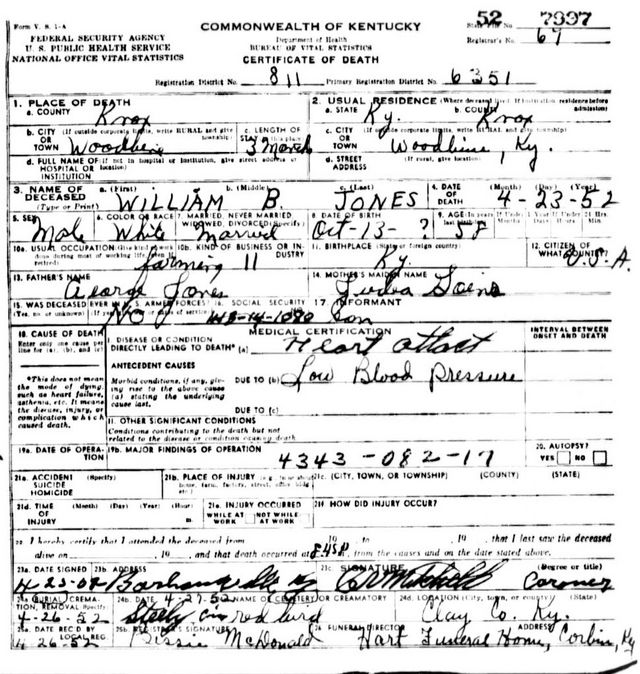 Form V. S. 1-A
COMMONWEALTH OF KENTUCKY
State File No. 52 7997
FEDERAL SECURITY AGENCY
Department of Health
Registrar's No. 67
U. S. PUBLIC HEALTH SERVICE
BUREAU OF VITAL STATISTICS
NATIONAL OFFICE VITAL STATISTICS
CERTIFICATE OF DEATH
Registration District No. 811 Primary Registration District No. 6351
1. PLACE OF DEATH
a. COUNTY Knox
2. USUAL RESIDENCE (Where deceased lived. If institution, residence before admission)
a. STATE Ky. b. COUNTY Knox
b. CITY OR TOWN (If outside corporate limits, write RURAL and give township) Woodbine
c. LENGTH OF STAY (in this place) 3
c. CITY OR TOWN (If outside corporate limits, write RURAL and give township) Woodbine, Ky.
d. FULL NAME OF HOSPITAL OR INSTITUTION (If not in hospital or institution, give street address or location)
d. STREET ADDRESS (If rural, give location)
3. NAME OF DECEASED (Type or Print) a. (First) WILLIAM b. (Middle) B. c. (Last) JONES
4. DATE OF DEATH (Month) (Day) (Year) 4-23-52
5. SEX Male
6. COLOR OR RACE White
7. MARRIED, NEVER MARRIED, WIDOWED, DIVORCED (Specify) Married
8. DATE OF BIRTH Oct-13-?
9. AGE (In years If Under 1 Year If Under 24 Hrs. 58
10a. USUAL OCCUPATION (Give kind of work done during most of working life, even if retired) farming
10b. KIND OF BUSINESS OR INDUSTRY 11
11. BIRTHPLACE (State or foreign country) Ky.
12. CITIZEN OF WHAT COUNTRY? U.S.A.
13. FATHER'S NAME George Jones
14. MOTHER'S MAIDEN NAME
15. WAS DECEASED EVER IN U.S. ARMED FORCES? (Yes, no, or unknown) No
16. SOCIAL SECURITY
17 INFORMANT Son
18. CAUSE OF DEATH
Enter only one cause per line for (a), (b), and (c)
MEDICAL CERTIFICATION
INTERVAL BETWEEN ONSET AND DEATH
I. DISEASE OR CONDITION DIRECTLY LEADING TO DEATH* (a) Heart attact
*This does not mean the mode of dying, such as heart failure, asthenia, etc. It means the disease, injury, or complication which caused death.
ANTECEDENT CAUSES
Morbid conditions, if any, giving rise to the above cause (a) stating the underlying cause last.
DUE TO (b) Low Blood Pressure
DUE TO (c)
II. OTHER SIGNIFICANT CONDITIONS
Conditions contributing to the death but not related to the disease or condition causing death
19a. DATE OF OPERATION
19b. MAJOR FINDINGS OF OPERATION
4343-082-17
20. AUTOPSY? YES NO
21a. ACCIDENT SUICIDE HOMICIDE
21b. PLACE OF INJURY (e.g., in or about home, farm, factory, street, office bldg., etc.)
21c. (CITY, TOWN, OR TOWNSHIP) (COUNTY) (STATE)
21d. TIME OF INJURY (Month) (Day) (Year) (Hour) m.
21e. INJURY OCCURRED WHILE AT WORK NOT WHILE AT WORK
21f HOW DID INJURY OCCUR?
22. I hereby certify that I attended the deceased from 19 to 19 , that I last saw the deceased
alive on 19 , and that death occurred at m., from the causes and on the date stated above.
23a. DATE SIGNED
23b. ADDRESS
23c. SIGNATURE (Degree or title) Coroner
24a. BURIAL, CREMATION, REMOVAL (Specify) 4-26-52
24b. DATE 4-27-52
24c. NAME OF CEMETERY OR CREMATORY red bird
24d. LOCATION (City, town, or county) (State) Clay Co. Ky.
25a. DATE REC'D BY LOCAL REG. 4-26-52
25b. REGISTRAR'S SIGNATURE Bessie McDonald
26. FUNERAL DIRECTOR ADDRESS Hart Funeral Home, Corbin, Ky